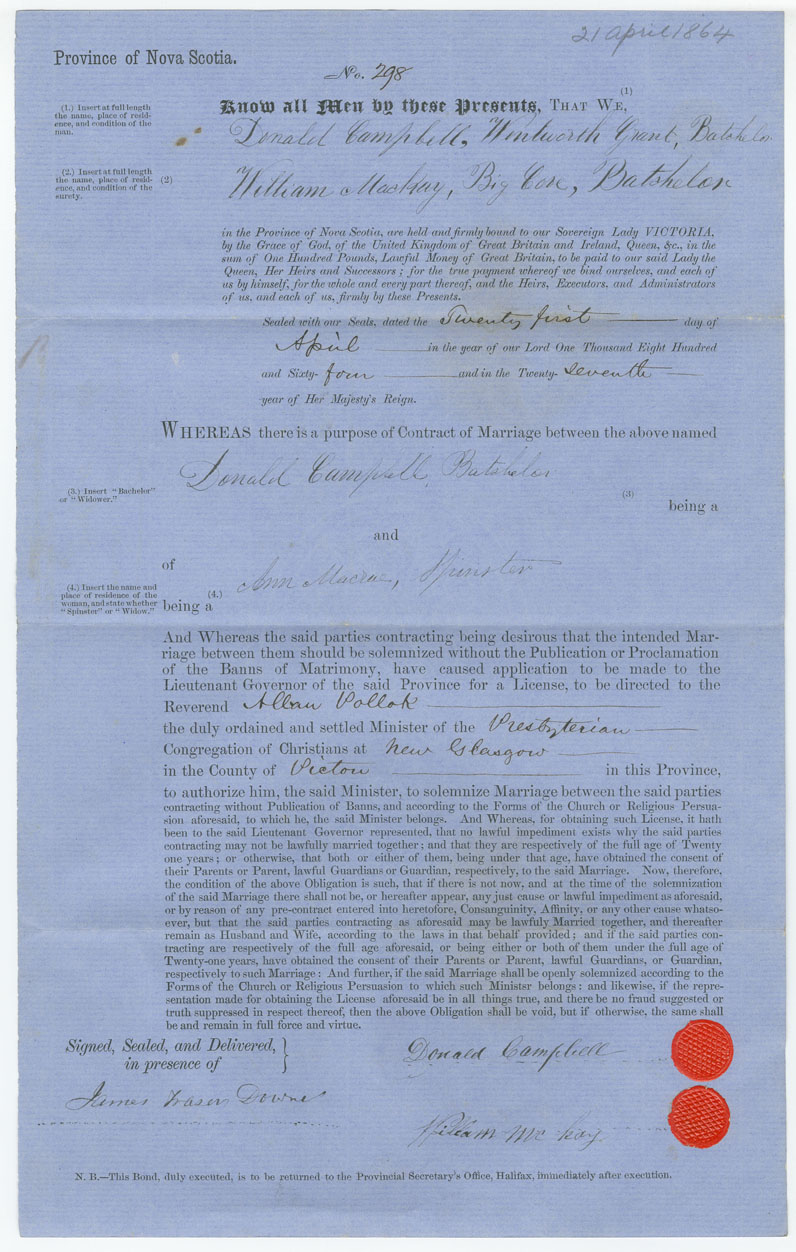 21 April 1864
Province of Nova Scotia.
No. 298
(1.) Insert at full length
the name, place of resid-
ence, and condition of the
man.
(1)
Know all Men by these Presents, THAT WE,
Donald Campbell, Wentworth Grant, Batchelor
(2.) Insert at full length
the name, place of resid-
ence, and condition of the
surety.
(2)
William MacKay, Big Cove, Batchelor
in the Province of Nova Scotia, are held and firmly bound to our Sovereign Lady VICTORIA,
by the Grace of God, of the United Kingdom of Great Britain and Ireland, Queen, &c., in the
sum of One Hundred Pounds, Lawful Money of Great Britain, to be paid to our said Lady the
Queen, Her Heirs and Successors; for the true payment whereof we bind ourselves, and each of
us by himself, for the whole and every part thereof, and the Heirs, Executors, and Administrators
of us, and each of us, firmly by these Presents.
Sealed with our Seals, dated the Twenty first day of
April in the year of our Lord One Thousand Eight Hundred
and Sixty-four and in the Twenty-seventh
year of Her Majesty's Reign.
WHEREAS there is a purpose of Contract of Marriage between the above named
Donald Campbell, Batchelor
(3.) Insert "Bachelor"
or "Widower."
(3)
being a
and
of
Ann Macrae, Spinster
(4.) Insert the name and
place of residence of the
woman, and state whether
"Spinster" or "Widow."
(4.)
being a
And Whereas the said parties contracting being desirous that the intended Mar-
riage between them should be solemnized without the Publication or Proclamation
of the Banns of Matrimony, have caused application to be made to the
Lieutenant Governor of the said Province for a License, to be directed to the
Reverend Allan Pollok
the duly ordained and settled Minister of the Presbyterian
Congregation of Christians at New Glasgow
in the County of Pictou in this Province,
to authorize him, the said Minister, to solemnize Marriage between the said parties
contracting without Publication of Banns, and according to the Forms of the Church or Religious Persua-
sion aforesaid, to which he, the said Minister belongs. And Whereas, for obtaining such License, it hath
been to the said Lieutenant Governor represented, that no lawful impediment exists why the said parties
contracting may not be lawfully married together; and that they are respectively of the full age of Twenty
one years; or otherwise, that both or either of them, being under that age, have obtained the consent of
their Parents or Parent, lawful Guardians or Guardian, respectively, to the said Marriage. Now, therefore,
the condition of the above Obligation is such, that if there is not now, and at the time of the solemnization
of the said Marriage there shall not be, or hereafter appear, any just cause or lawful impediment as aforesaid,
or by reason of any pre-contract entered into heretofore, Consanguinity, Affinity, or any other cause whatso-
ever, but that the said parties contracting as aforesaid may be lawfuly Married together, and thereafter
remain as Husband and Wife, according to the laws in that behalf provided; and if the said parties con-
tracting are respectively of the full age aforesaid, or being either or both of them under the full age of
Twenty-one years, have obtained the consent of their Parents or Parent, lawful Guardians, or Guardian,
respectively to such Marriage: And further, if the said Marriage shall be openly solemnized according to the
Forms of the Church or Religious Persuasion to which such Minister belongs: and likewise, if the repre-
sentation made for obtaining the License aforesaid be in all things true, and there be no fraud suggested or
truth suppressed in respect thereof, then the above Obligation shall be void, but if otherwise, the same shall
be and remain in full force and virtue.
Signed, Sealed, and Delivered,
in presence of
Donald Campbell
James Fraser Downe
William McKay
N. B.—This Bond, duly executed, is to be returned to the Provincial Secretary's Office, Halifax, immediately after execution.